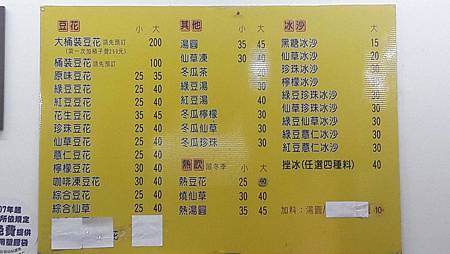 豆花 小 大
大桶裝豆花 請先預訂 200
桶裝豆花 請先預訂 100
原味豆花 25 35
綠豆豆花 30 40
紅豆豆花 30 40
花生豆花 35 45
珍珠豆花 30 40
仙草豆花 30 40
薏仁豆花 30 40
檸檬豆花 30 40
咖啡凍豆花 30 40
綜合豆花 25 40
綜合仙草 25 40
花
其他 小 大
湯圓 35 45
仙草凍 30 40
冬瓜茶 20
綠豆湯 30
紅豆湯 40
冬瓜檸檬 30
冬瓜仙草 30
冬瓜珍珠 30
熱飲 限冬季 小 大
熱豆花 25
燒仙草 30 40
熱湯圓 35 45
冰沙 大
黑糖冰沙 15
仙草冰沙 20
珍珠冰沙 30
檸檬冰沙 30
綠豆珍珠冰沙 30
仙草珍珠冰沙 30
綠豆仙草冰沙 30
綠豆薏仁冰沙 30
紅豆薏仁冰沙 30
挫冰(任選四種料) 40
加料：湯圓/ 10
07年起
所依規定
免費提供
用塑膠袋